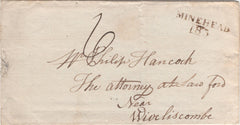 MINEHEAD
6
Mr Philip Hancock
The Attorney at Law ford
Near
Wiveliscombe